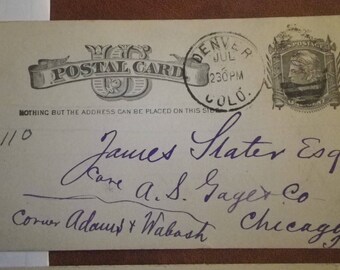 U S
POSTAL CARD
DENVER
JUL
2 30 PM
COLO.
NOTHING BUT THE ADDRESS CAN BE PLACED ON THIS SIDE
110
James Slater Esq
Care A. S. Gage & Co
Corner Adams & Wabash
Chicago